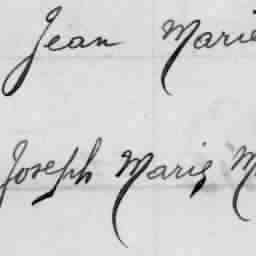 Jean Marie
Joseph Marie M